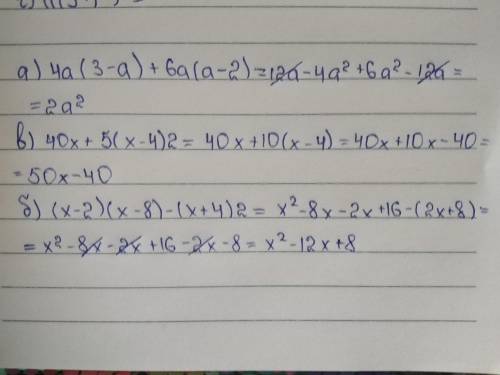 а) 4a(3-a)+6a(a-2)=12a-4a²+6a²-12a=
=2a²
в) 40x+5(x-4)2=40x+10(x-4)=40x+10x-40=
=50x-40
б) (x-2)(x-8)-(x+4)2=x²-8x-2x+16-(2x+8)=
=x²-8x-2x+16-2x-8=x²-12x+8